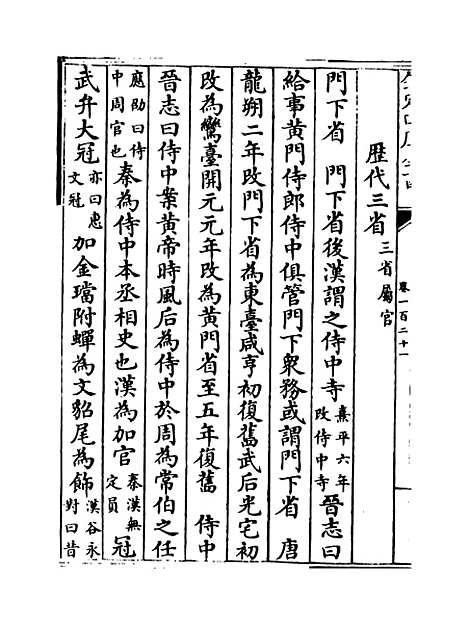 卷一百二十一
歷代三省三省屬官
門下省　門下省後漢謂之侍中寺熹平六年改侍中寺晉志曰
給事黃門侍郎侍中俱管門下衆務或謂門下省　唐
龍朔二年改門下省為東臺咸亨初復舊武后光宅初
改為鸞臺開元元年改為黃門省至五年復舊　侍中
晉志曰侍中案黃帝時風后為侍中於周為常伯之任
應劭曰侍中周官也秦為侍中本丞相史也漢為加官秦漢無定員冠
武弁大冠亦曰惠文冠加金璫附蟬為文貂尾為飾漢谷永對曰昔